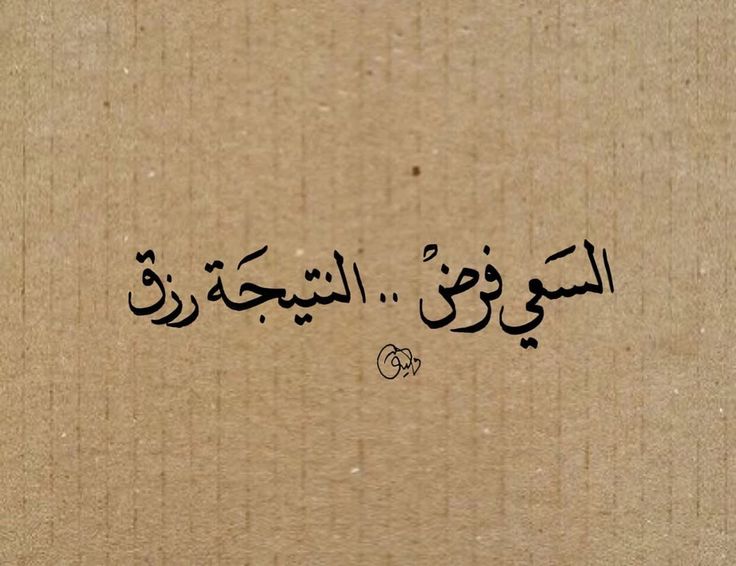 السَعي فرضْ .. النتيجَة رزق